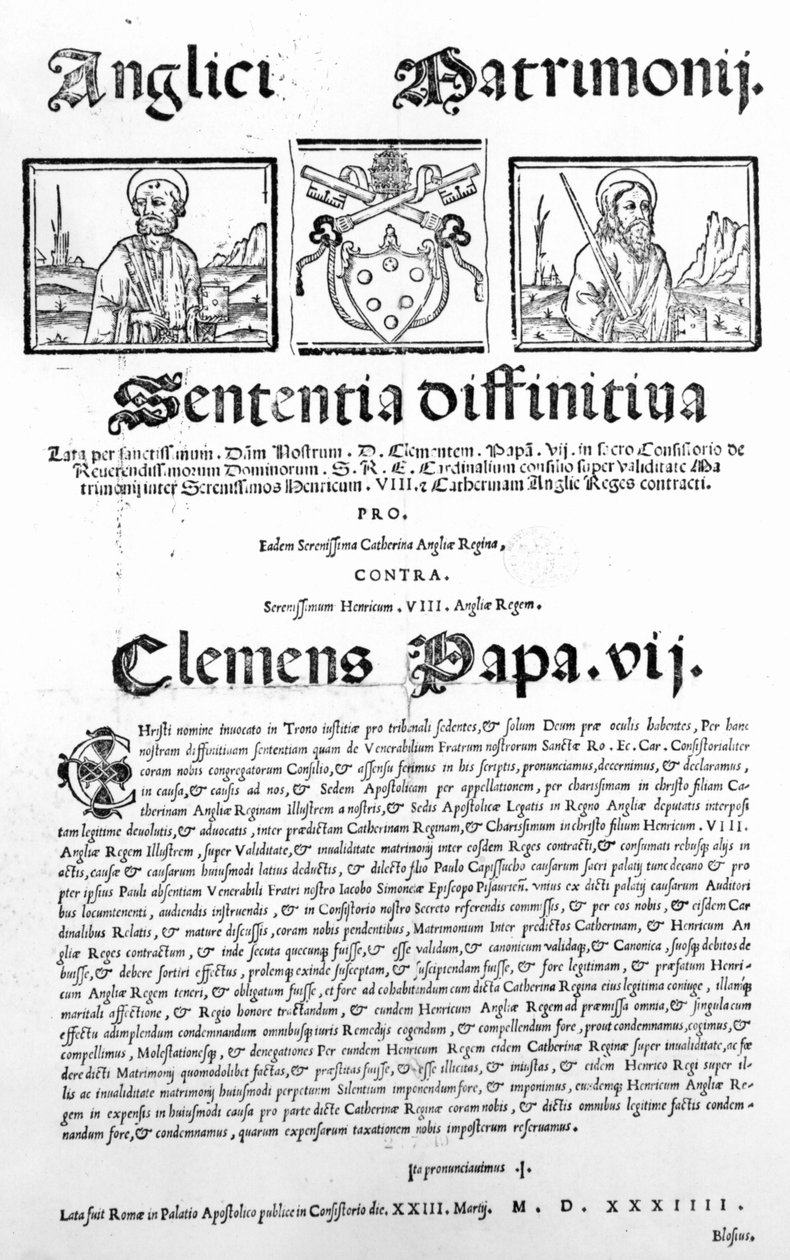 Anglici Matrimonij.
Sententia diffinitiua
Lata per sanctissimum . Dñm Nostrum . D. Clementem . Papã . Vij. in sacro Consistorio de
Reuerendissimorum Dominorum . S. R. E. Cardinalium consilio super Validitate Ma
trimonij inter Serenissimos Henricum . VIII. & Catherinam Anglie Reges contracti.
PRO.
Eadem Serenissima Catherina Angliæ Regina,
CONTRA.
Serenissimum Henricum . VIII. Angliæ Regem.
Clemens Papa . vij.
CHristi nomine inuocato in Trono iustitiæ pro tribunali sedentes, & solum Deum præ oculis habentes, Per hanc
nostram diffinitiuam sententiam quam de Venerabilium Fratrum nostrorum Sanctæ Ro. Ec. Car. Consistorialiter
coram nobis congregatorum Consilio, & assensu ferimus in his scriptis, pronunciamus, decernimus, & declaramus,
in causa, & causis ad nos, & Sedem Apostolicam per appellationem, per charissimam in christo filiam Ca-
therinam Angliæ Reginam Illustrem a nostris, & Sedis Apostolicæ Legatis in Regno Angliæ deputatis interposi
tam legitime deuolutis, & aduocatis, inter prædictam Catherinam Reginam, & Charissimum in christo filium Henricum . VIII.
Angliæ Regem Illustrem, super Validitate, & inualiditate matrimonij inter eosdem Reges contracti, & consumati rebusq; alijs in
actis, causæ & causarum huiusmodi latius deductis, & dilecto filio Paulo Capissucho causarum sacri palatij tunc decano & pro
pter ipsius Pauli absentiam Venerabili Fratri nostro Iacobo Simoneæ Episcopo Pisaurieñ. vnius ex dicti palatij causarum Auditori
bus locumtenenti, audiendis instruendis, & in Consistorio nostro Secreto referendis commissis, & per eos nobis, & eisdem Car
dinalibus Relatis, & mature discussis, coram nobis pendentibus, Matrimonium Inter predictos Catherinam, & Henricum An
gliæ Reges contractum, & inde secuta quecunq; fuisse, & esse validum, & canonicum validaq;, & Canonica, suosq; debitos de
buisse, & debere sortiri effectus, prolemq; exinde susceptam, & suscipiendam fuisse, & fore legitimam, & præfatum Henri-
cum Angliæ Regem teneri, & obligatum fuisse, et fore ad cohabitandum cum dicta Catherina Regina eius legitima coniuge, illamq;
maritali affectione, & Regio honore tractandum, & eundem Henricum Angliæ Regem ad præmissa omnia, & singula cum
effectu adimplendum condemnandum omnibusq; iuris Remedijs cogendum, & compellendum fore, prout condemnamus, cogimus, &
compellimus, Molestationesq;, & denegationes Per eundem Henricum Regem eidem Catherinæ Reginæ super inualiditate, ac fœ
dere dicti Matrimonij quomodolibet factas, & præstitas fuisse, & esse illicitas, & iniustas, & eidem Henrico Regi super il-
lis ac inualiditate matrimonij huiusmodi perpetuum Silentium imponendum fore, & imponimus, eundemq; Henricum Angliæ Re-
gem in expensis in huiusmodi causa pro parte dicte Catherinæ Reginæ coram nobis, & dictis omnibus legitime factis condem-
nandum fore, & condemnamus, quarum expensarum taxationem nobis imposterum reseruamus.
Ita pronunciauimus .I.
Lata fuit Romæ in Palatio Apostolico publice in Consistorio die. XXIII. Martij. M. D. XXXIIII.
Blosius.